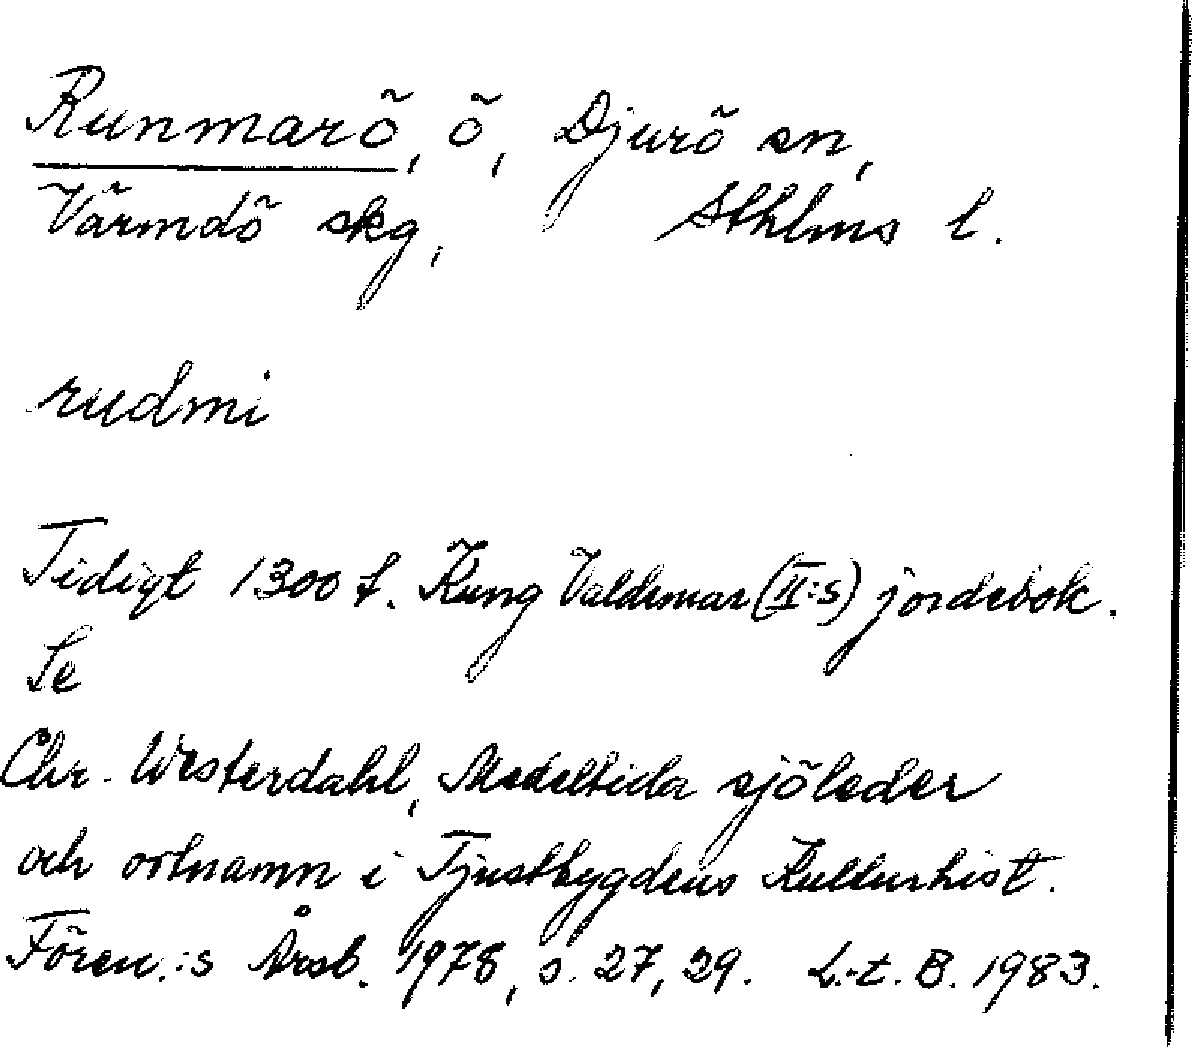 Runmarö, ö, Djurö sn,
Värmdö skg, Sthlms l.
rudmi
Tidigt 1300 t. Kung Valdemar (II:s) jordebok.
Se
Chr. Westerdahl, Medeltida sjöleder
och ortnamn i Tjustbygdens Kulturhist.
Fören.:s Årsb. 1978, s. 27, 29. L.-t. B. 1983.